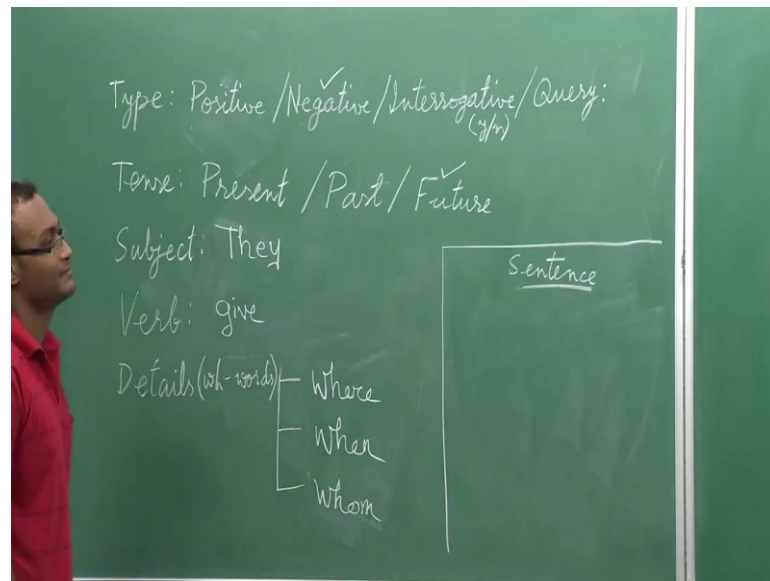 Type: Positive / Negative / Interrogative / Query:
(y/n)
Tense: Present / Past / Future
Subject: They
Verb: give
Details (wh-words)
Where
When
Whom
Sentence